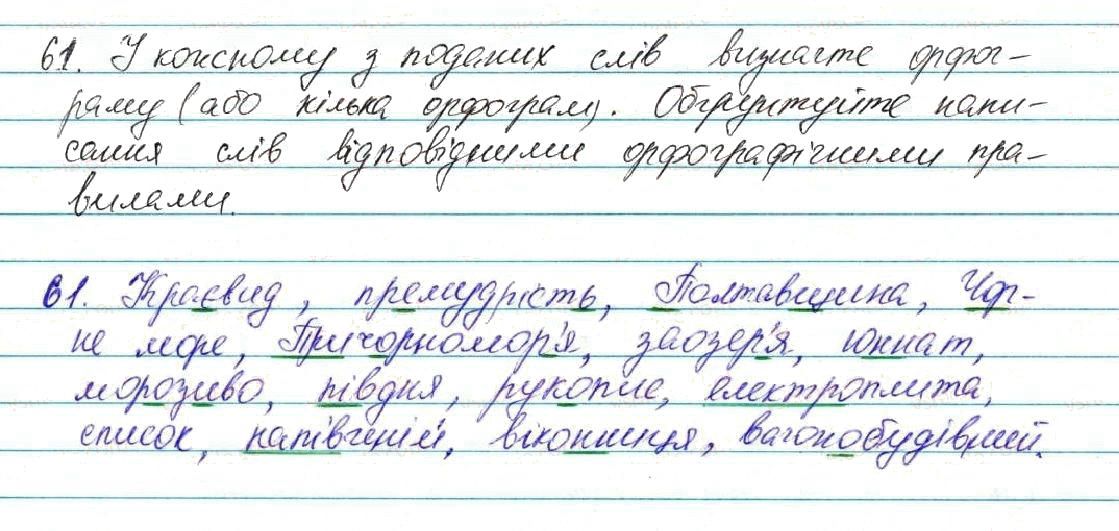 61. У кожному з поданих слів визначте орфог-
раму (або кілька орфограм). Обґрунтуйте напи-
сання слів відповідними орфографічними пра-
вилами.
61. Краєвид, премудрість, Полтавщина, Чор-
не море, Причорномор'я, заозер'я, юннат,
морозиво, півдня, рукопис, електроплита,
список, напівчений, віконниця, вагонобудівний.